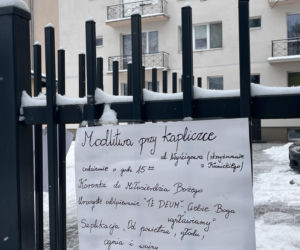 Modlitwa przy Kapliczce
ul. Zwycięzców (skrzyżowanie
codziennie o godz. 15 00 z Kanickiego)
Koronka do Miłosierdzia Bożego
Uroczyste odśpiewanie "TE DEUM", Ciebie Boga
wysławiamy"
Suplikacja, Od powietrza, głodu,
ognia i wojny